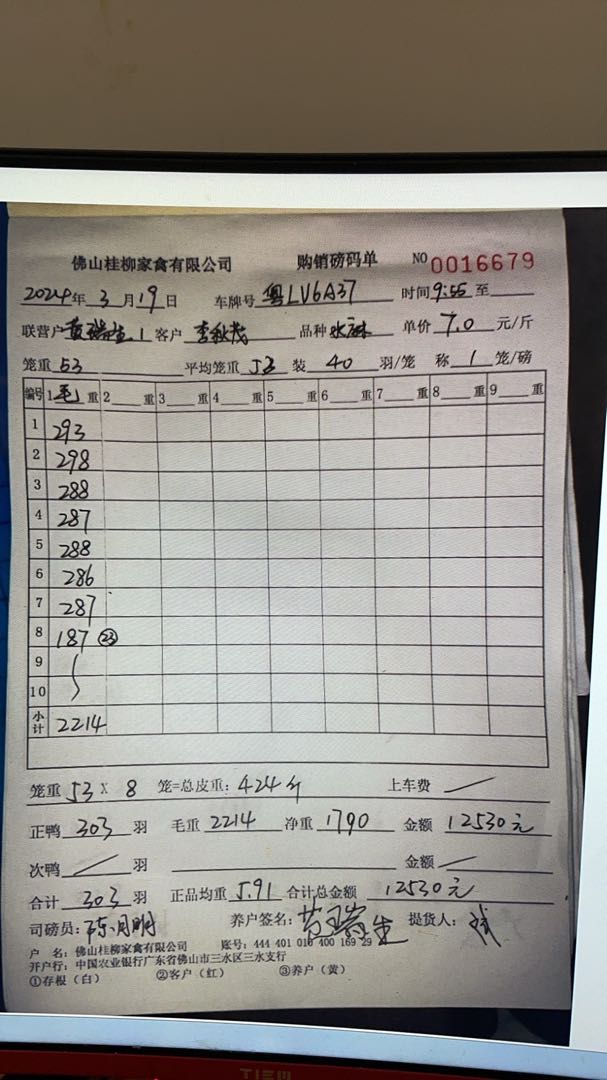 佛山桂柳家禽有限公司 购销磅码单 NO 0016679
2024年3月19日 车牌号 粤LV6A37 时间 9:55 至
联营户 黄瑞生 1 客户 李秋茂 品种 单价 7.0 元/斤
笼重 53 平均笼重 53 装 40 羽/笼 称 1 笼/磅
编号 1 毛 重 2 重 3 重 4 重 5 重 6 重 7 重 8 重 9 重
1 293
2 298
3 288
4 287
5 288
6 286
7 287
8 187 ㉓
9
10
小计 2214
笼重 53 X 8 笼=总皮重: 424斤 上车费
正鸭 303 羽 毛重 2214 净重 1790 金额 12530元
次鸭 羽 金额
合计 303 羽 正品均重 5.91 合计总金额 12530元
司磅员: 陈月明 养户签名: 黄瑞生 提货人:
户 名: 佛山桂柳家禽有限公司 账号: 444 401 010 400 169 29
开户行: 中国农业银行广东省佛山市三水区三水支行
①存根（白） ②客户（红） ③养户（黄）